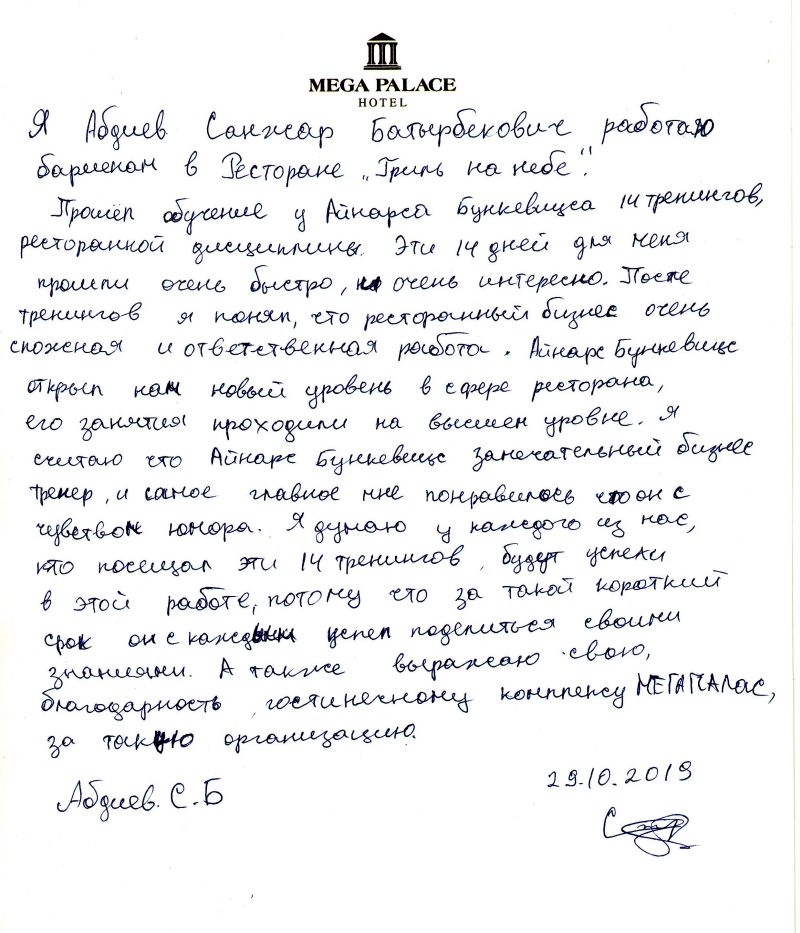 MEGA PALACE
HOTEL
Я Абдиев Санжар Батырбекович работаю
барменом в Ресторане „Гриль на небе".
Прошёл обучение у Айнарса Бункевицса 14 тренингов,
ресторанной дисциплины. Эти 14 дней для меня
прошли очень быстро, очень интересно. После
тренингов я понял, что ресторанный бизнес очень
сложная и ответственная работа. Айнарс Бункевицс
открыл нам новый уровень в сфере ресторана,
его занятия проходили на высшем уровне. Я
считаю что Айнарс Бункевицс замечательный бизнес
тренер, и самое главное мне понравилось что он с
чувством юмора. Я думаю у каждого из нас,
кто посещал эти 14 тренингов, будут успехи
в этой работе, потому что за такой короткий
срок он с каждым успел поделиться своими
знаниями. А также выражаю свою,
благодарность гостинечному комплексу МЕГАПАЛАС,
за такую организацию.
Абдиев. С.Б
29.10.2019